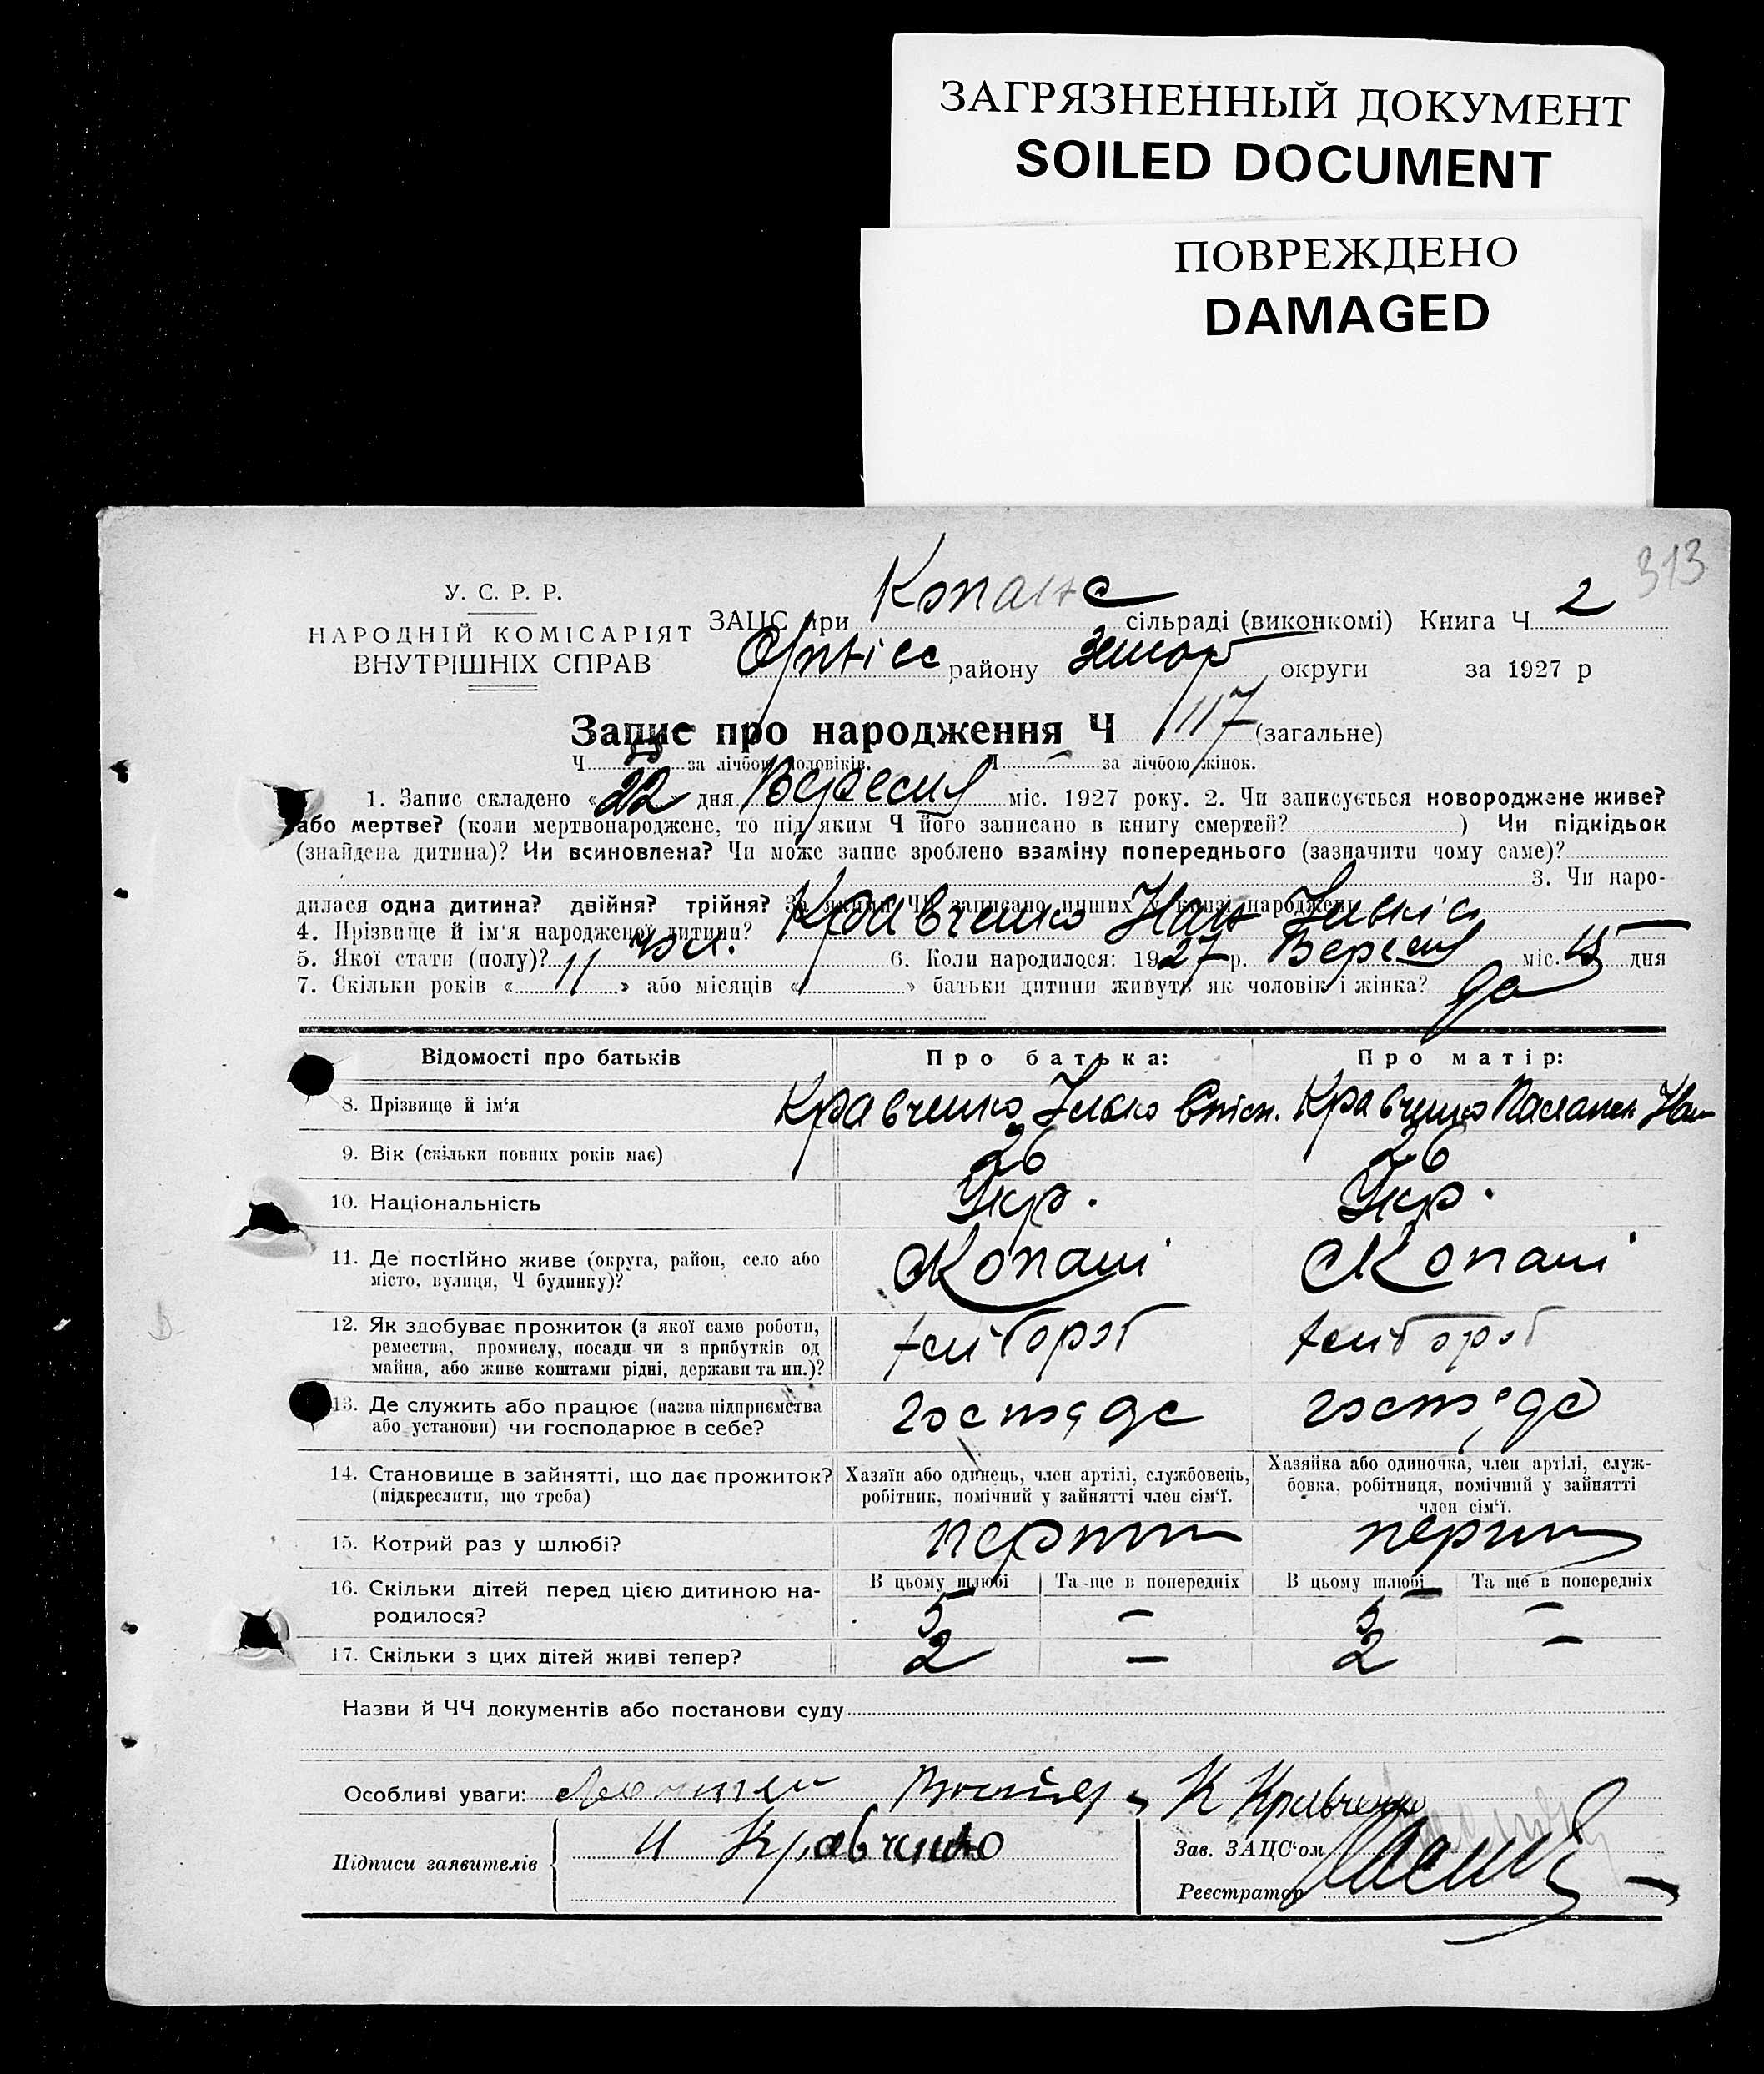 ЗАГРЯЗНЕННЫЙ ДОКУМЕНТ
SOILED DOCUMENT
ПОВРЕЖДЕНО
DAMAGED
313
У. С. Р. Р.
НАРОДНІЙ КОМІСАРІЯТ
ВНУТРІШНІХ СПРАВ
ЗАЦС при Копанс сільраді (виконкомі) Книга Ч. 2
району округи за 1927 р
Запис про народження Ч 117 (загальне)
Ч. за лічбою чоловіків. Ч. — за лічбою жінок.
1. Запис складено « 22 » дня Вересня міс. 1927 року. 2. Чи записується новороджене живе?
або мертве? (коли мертвонароджене, то під яким Ч його записано в книгу смертей? ) Чи підкідьок
(знайдена дитина)? Чи всиновлена? Чи може запис зроблено взаміну попереднього (зазначити чому саме)?
3. Чи наро-
дилася одна дитина? двійня? трійня? За якими ЧЧ записано инших у книзі народжень
4. Прізвище й ім'я народженої дитини? Кравченко Іван
5. Якої стати (полу)? чол. 6. Коли народилося: 1927 р. Вересня міс. 15 дня
7. Скільки років « 11 » або місяців « » батьки дитини живуть як чоловік і жінка? да
Відомості про батьків
Про батька:
Про матір:
8. Прізвище й ім'я
Кравченко Ілько
Кравченко
9. Вік (скільки повних років має)
26
26
10. Національність
Укр.
Укр.
11. Де постійно живе (округа, район, село або
місто, вулиця, Ч будинку)?
Копані
Копані
12. Як здобуває прожиток (з якої саме роботи,
ремества, промислу, посади чи з прибутків од
майна, або живе коштами рідні, держави та ин.)?
13. Де служить або працює (назва підприємства
або установи) чи господарює в себе?
14. Становище в зайнятті, що дає прожиток?
(підкреслити, що треба)
Хазяїн або одинець, член артілі, службовець,
робітник, помічний у зайнятті член сім'ї.
Хазяйка або одиночка, член артілі, служ-
бовка, робітниця, помічний у зайнятті
член сім'ї.
15. Котрий раз у шлюбі?
16. Скільки дітей перед цією дитиною на-
родилося?
В цьому шлюбі
Та ще в попередніх
В цьому шлюбі
Та ще в попередніх
5 — 5 —
17. Скільки з цих дітей живі тепер?
2 — 2 —
Назви й ЧЧ документів або постанови суду
Особливі уваги: К Кравченко
Підписи заявителів И Кравченко
Зав. ЗАЦС'ом
Реєстратор